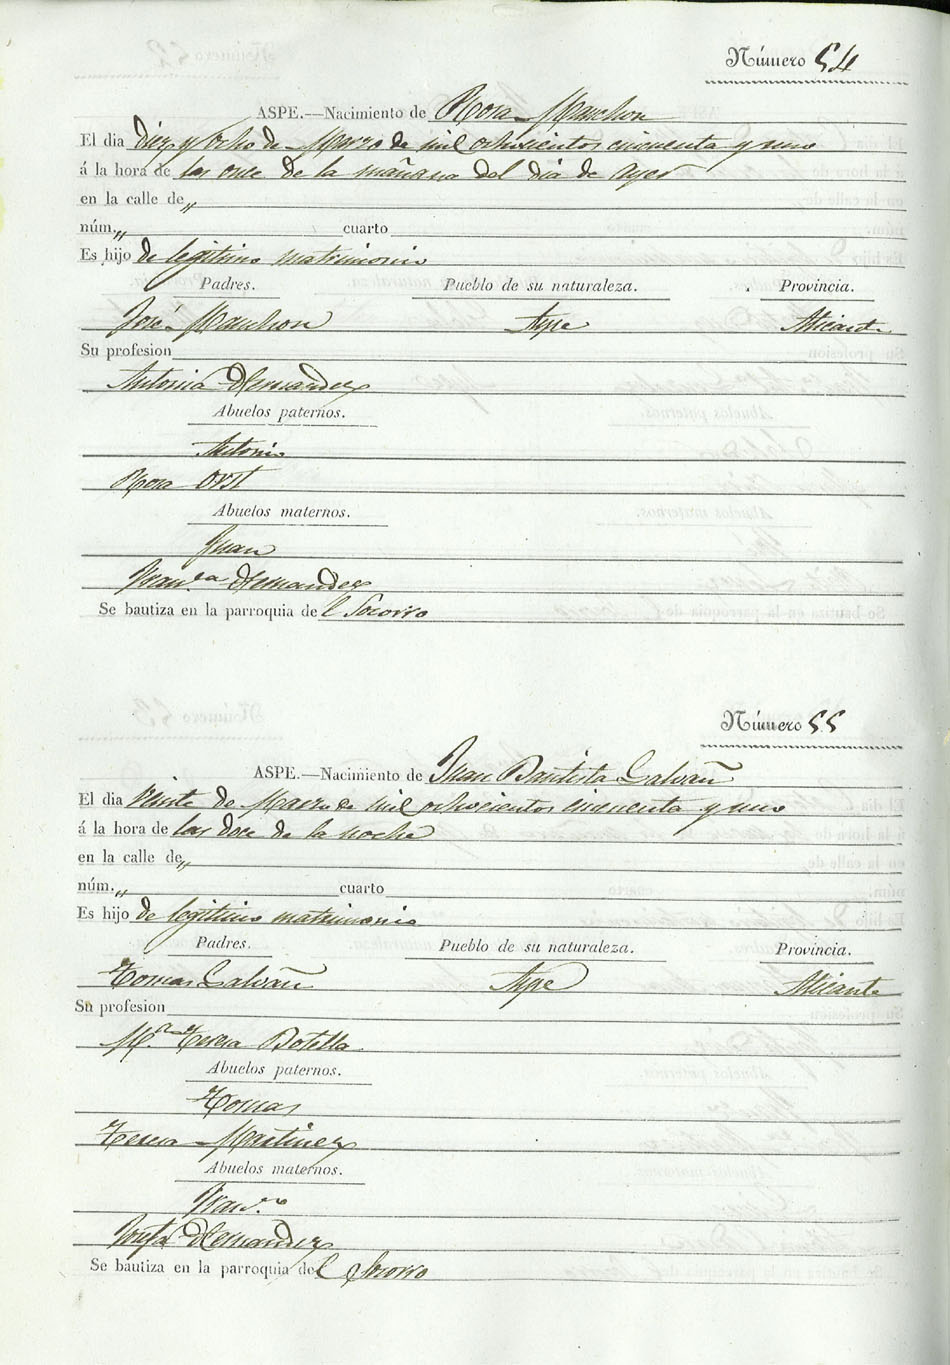 Número 54
ASPE.—Nacimiento de Rosa Manchon
El dia diez y Ocho de Marzo de mil ochocientos cincuenta y uno
á la hora de las once de la mañana del dia de ayer
en la calle de „
núm. „ cuarto
Es hijo de legitimo matrimonio
Padres. Pueblo de su naturaleza. Provincia.
José Manchon Aspe Alicante
Su profesion
Antonia Hernandez
Abuelos paternos.
Antonio
Rosa
Abuelos maternos.
Juan
Fran.ca Hernandez
Se bautiza en la parroquia del Socorro
Número 55
ASPE.—Nacimiento de Juan Bautista Galvañ
El dia veinte de Marzo de mil ochocientos cincuenta y uno
á la hora de las doce de la noche
en la calle de „
núm. „ cuarto
Es hijo de legitimo matrimonio
Padres. Pueblo de su naturaleza. Provincia.
Tomas Galvañ Aspe Alicante
Su profesion
M.ª Teresa Botella
Abuelos paternos.
Tomas
Teresa Martinez
Abuelos maternos.
Fran.co
Josefa Hernandez
Se bautiza en la parroquia del Socorro